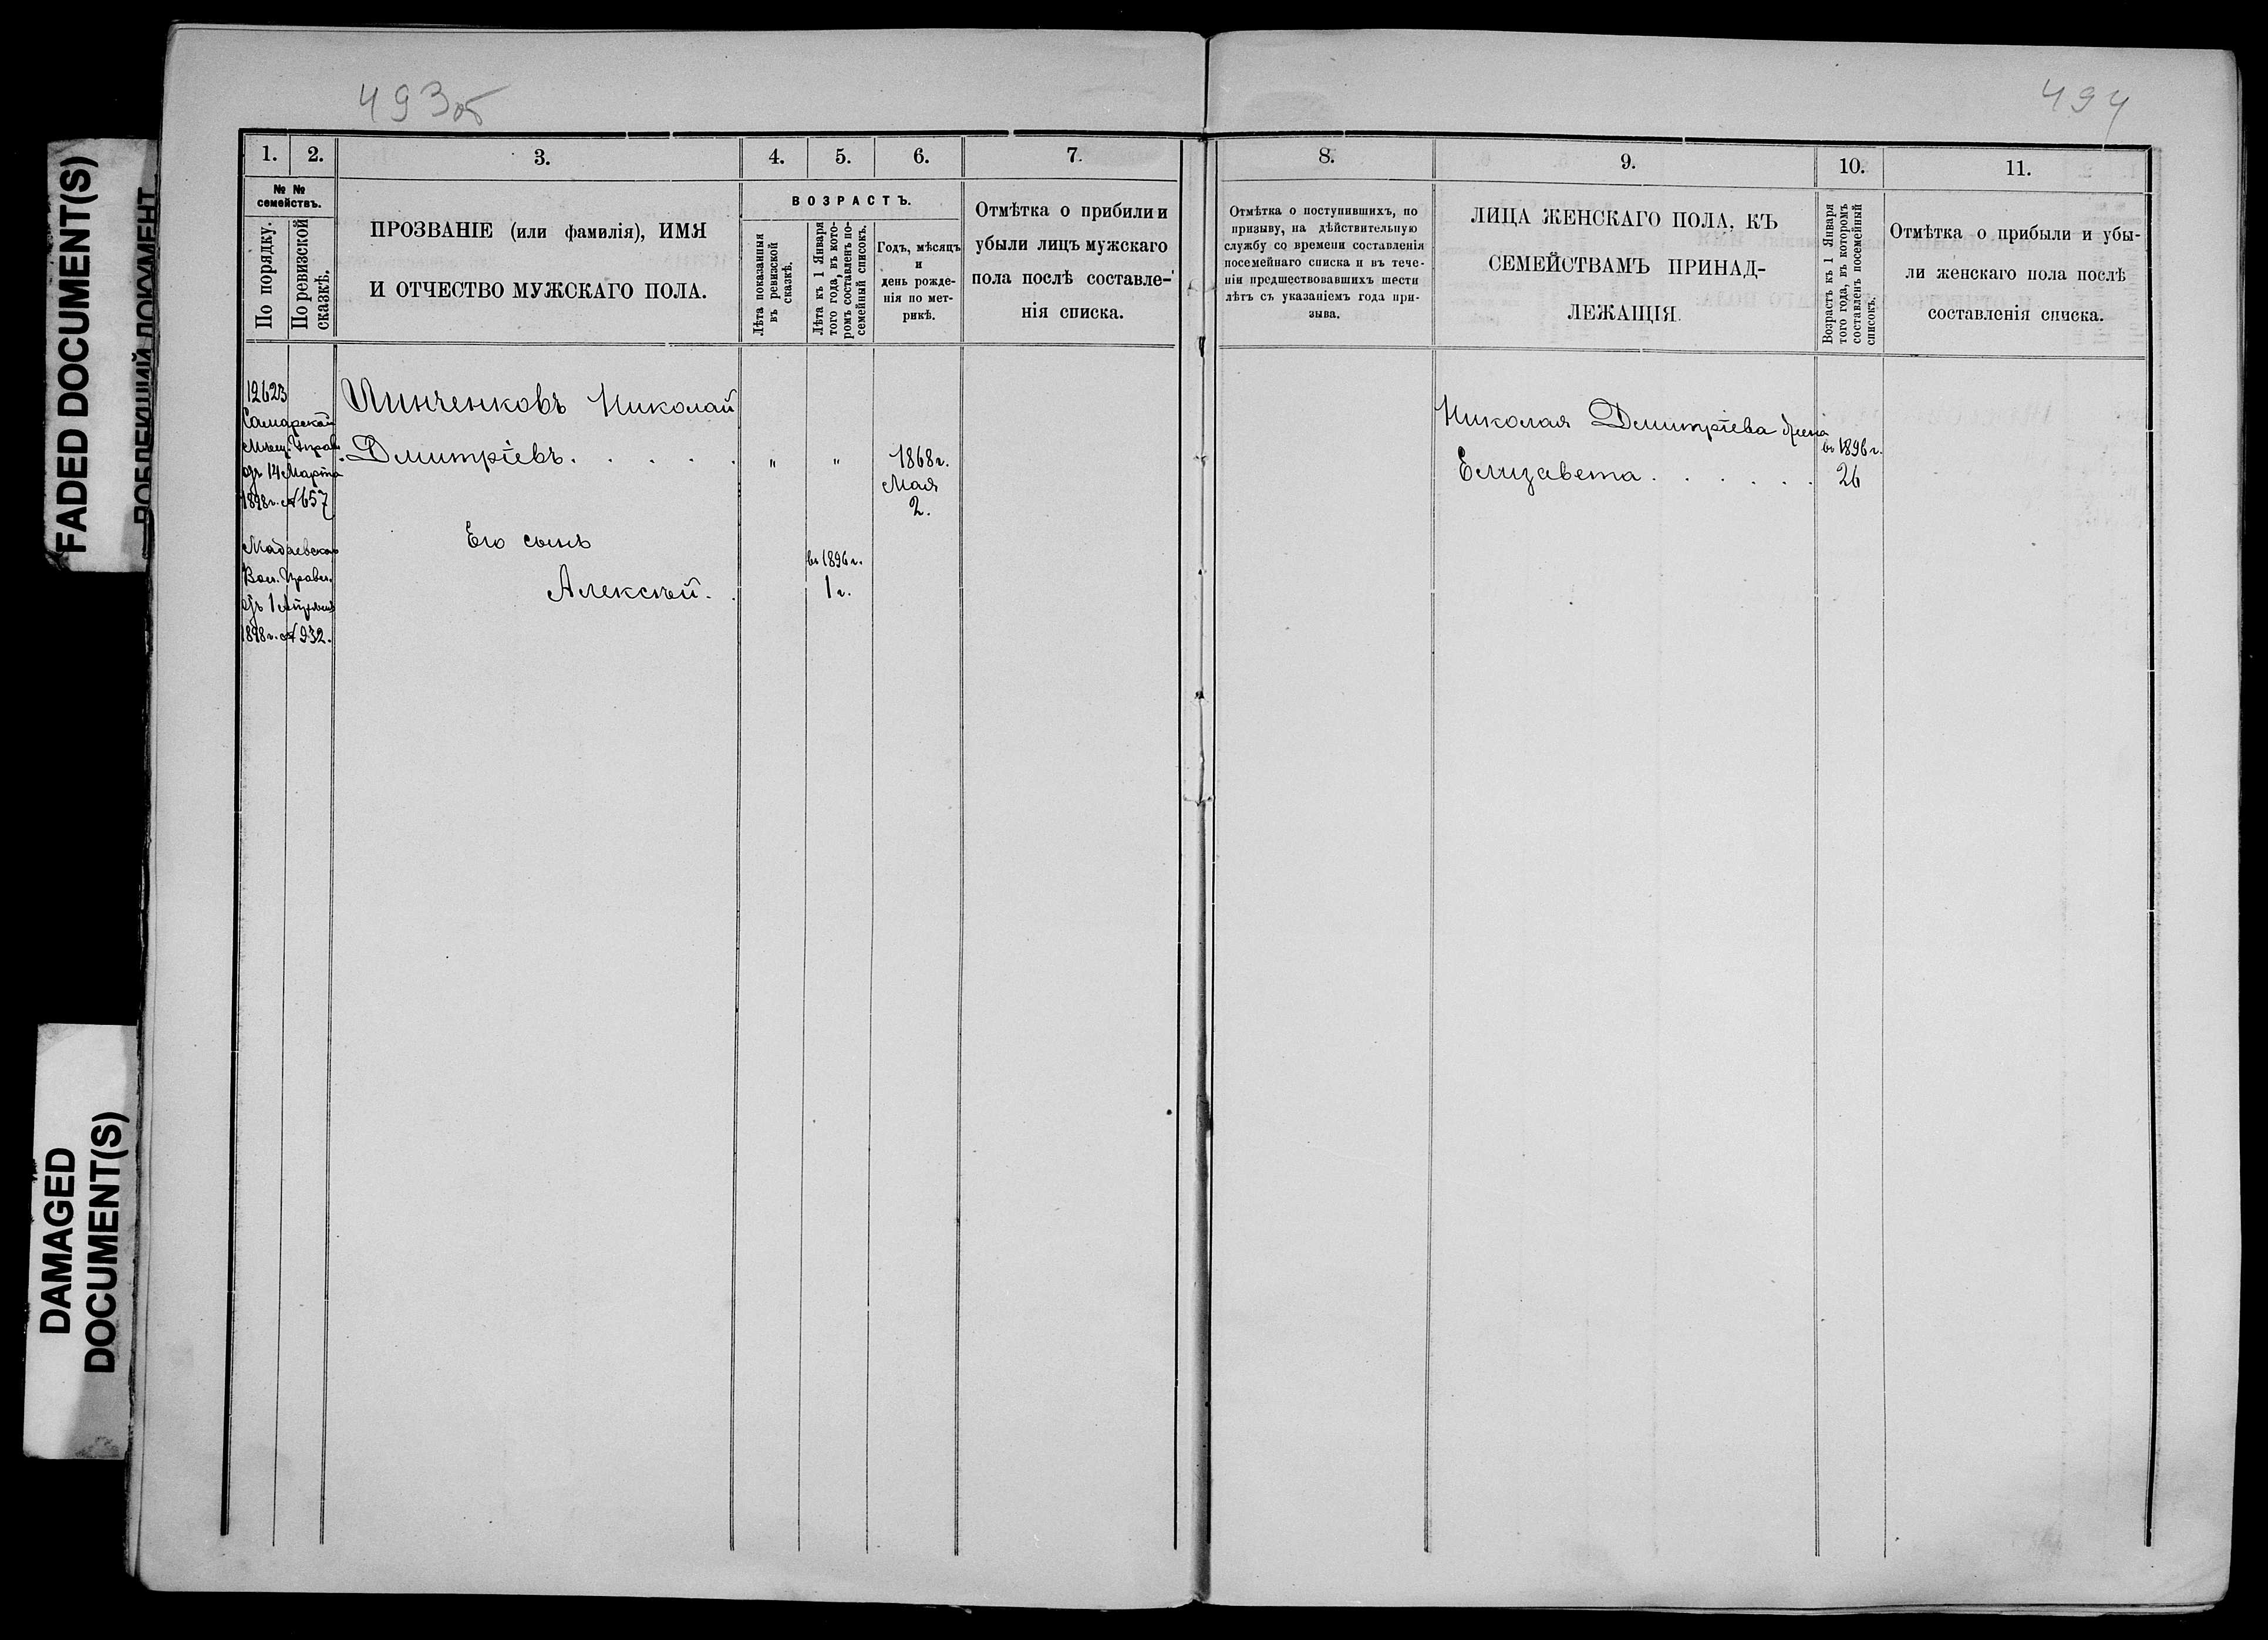 FADED DOCUMENT(S)
DAMAGED
DOCUMENT(S)
493об
494
1.
2.
3.
4.
5.
6.
7.
№ №
семействъ.
По порядку.
По ревизской
сказкѣ.
ПРОЗВАНІЕ (или фамилія), ИМЯ
И ОТЧЕСТВО МУЖСКАГО ПОЛА.
ВОЗРАСТЪ.
Лѣта показанныя
въ ревизской
сказкѣ.
Лѣта къ 1 Января
того года, въ кото-
ромъ составленъ по-
семейный списокъ.
Годъ, мѣсяцъ
и
день рожде-
нія по мет-
рикѣ.
Отмѣтка о прибыли и
убыли лицъ мужскаго
пола послѣ составле-
нія списка.
12623
Самарской
Мѣщ. Управ.
отъ 14 Марта
1898 г. № 657
Вол. Правл.
отъ 1 Апрѣля
1898 г. № 932.
Линченковъ Николай
Дмитріевъ. . . . . .
"
"
1868 г.
Мая
2.
Его сынъ
Алексѣй. .
въ 1896 г.
1 г.
8.
9.
10.
11.
Отмѣтка о поступившихъ, по
призыву, на дѣйствительную
службу со времени составленія
посемейнаго списка и въ тече-
ніи предшествовавшихъ шести
лѣтъ съ указаніемъ года при-
зыва.
ЛИЦА ЖЕНСКАГО ПОЛА, КЪ
СЕМЕЙСТВАМЪ ПРИНАД-
ЛЕЖАЩІЯ.
Возрастъ къ 1 Января
того года, въ которомъ
составленъ посемейный
списокъ.
Отмѣтка о прибыли и убы-
ли женскаго пола послѣ
составленія списка.
Николая Дмитріева жена
Елизавета . . . . . .
въ 1896 г.
26